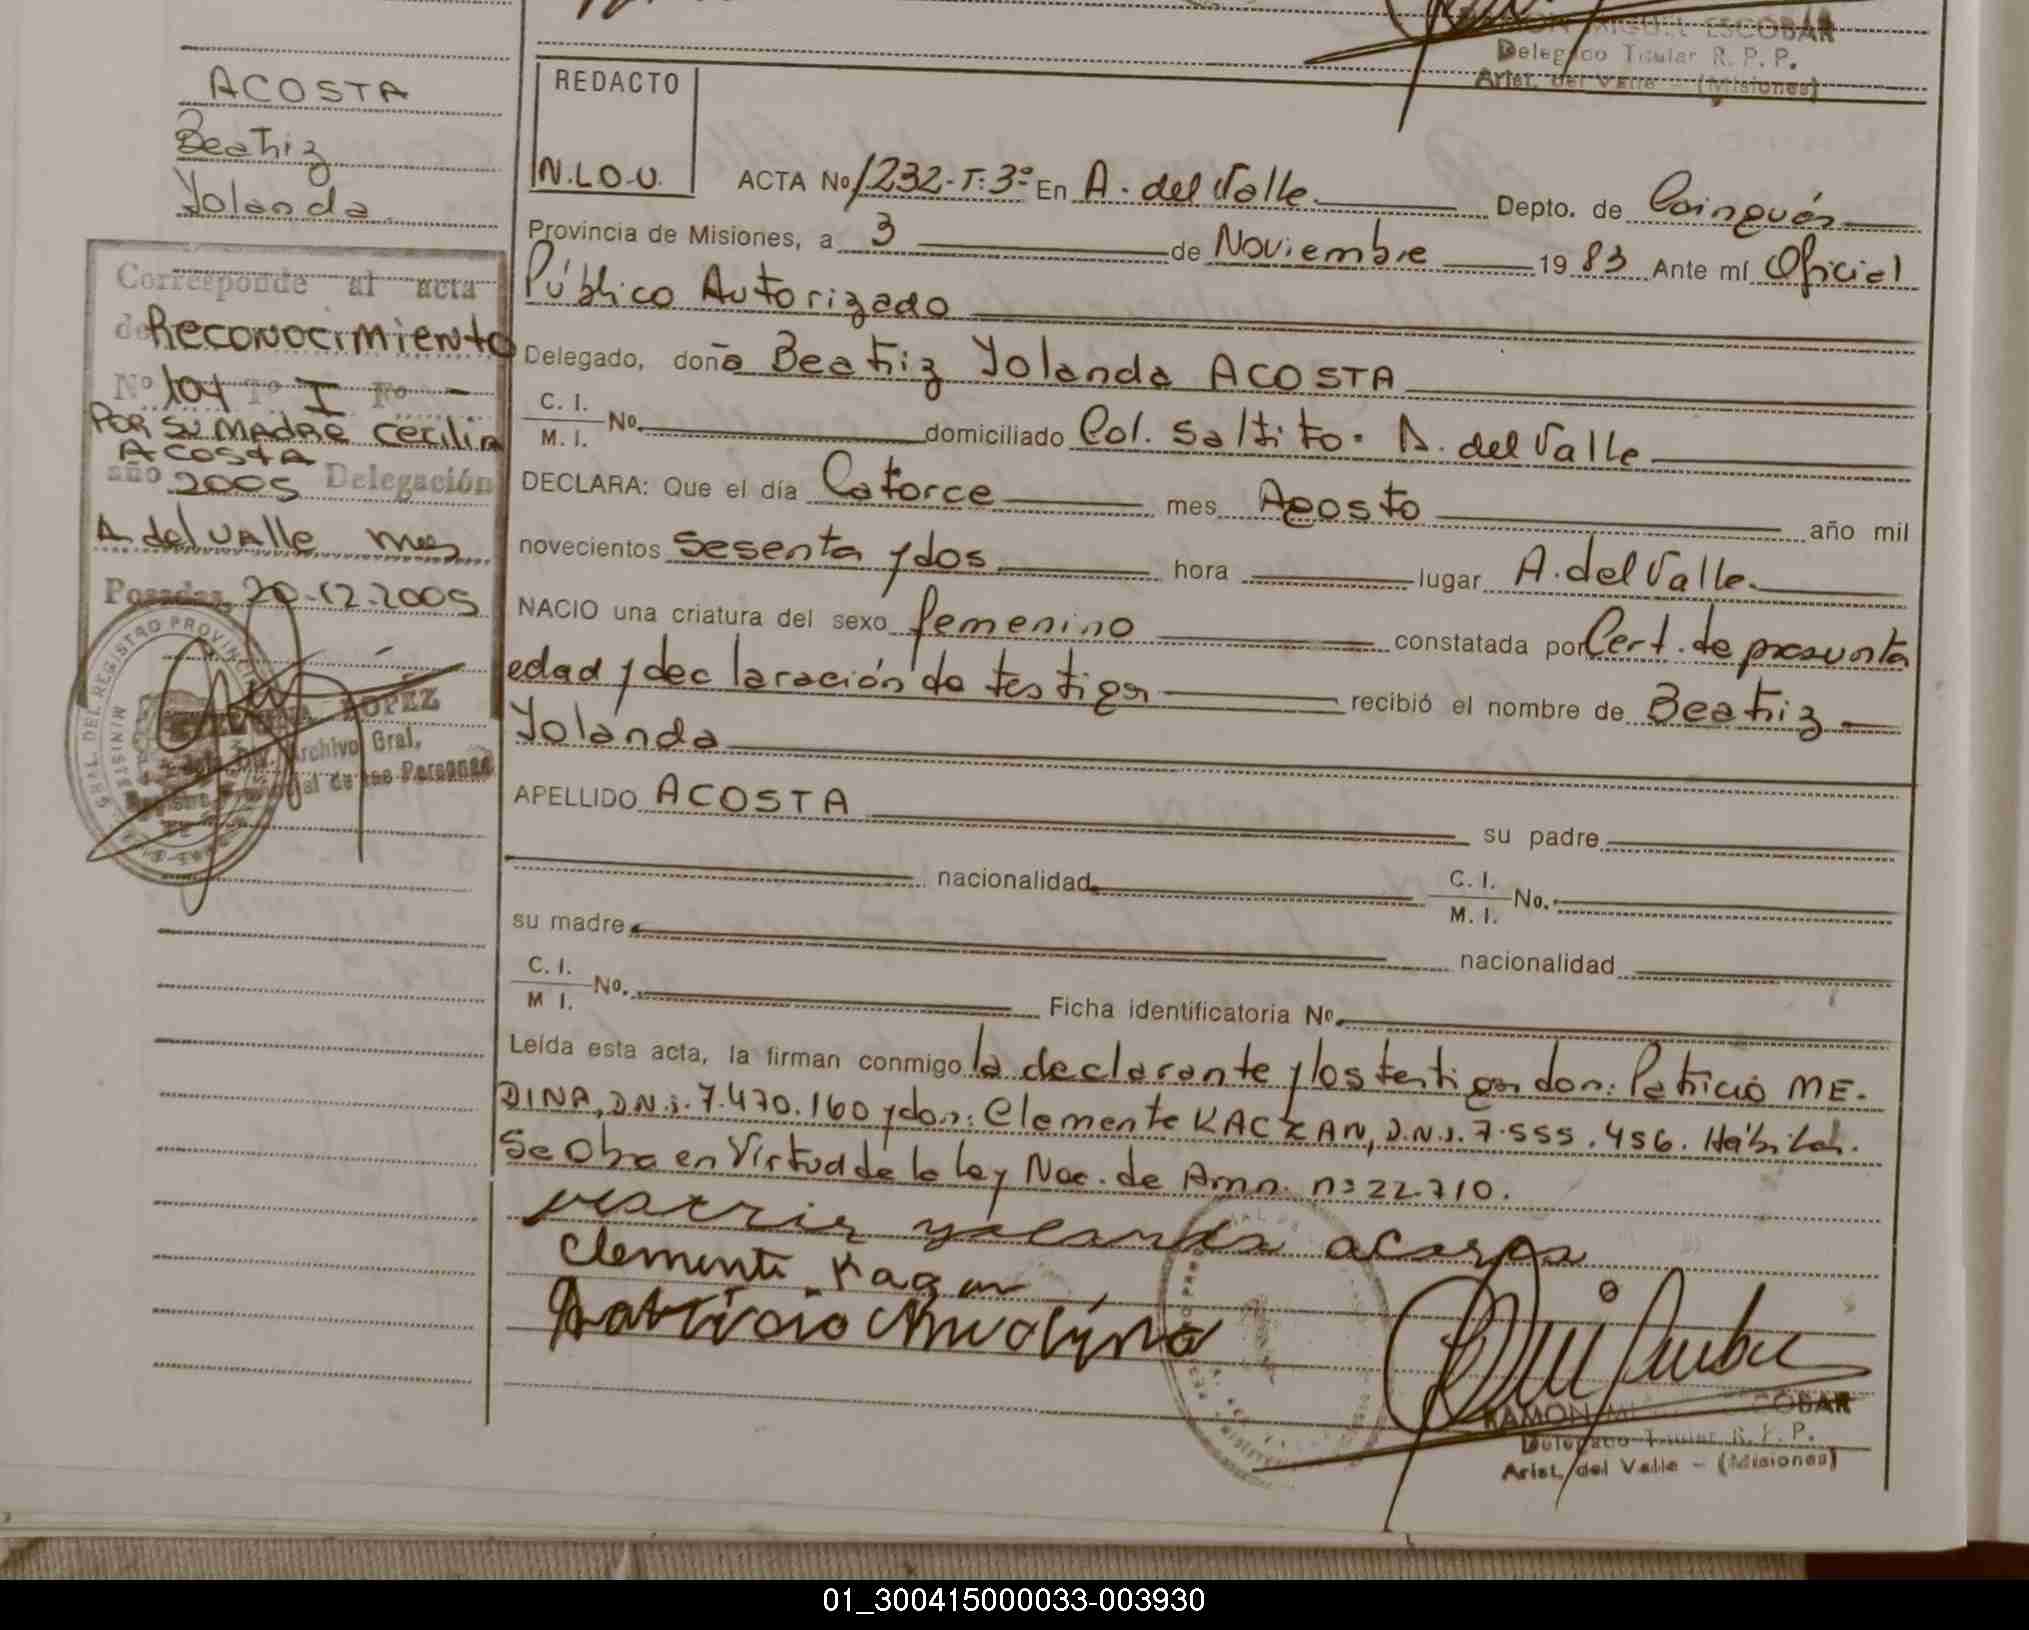 MIGUEL ESCOBAR
Delegado Titular R. P. P.
Arist. del Valle - (Misiones)
ACOSTA
Beatriz
Yolanda
Corresponde al acta
de Reconocimiento
Nº 104 Tº I Fº -
POR SU MADRE Cecilia
ACOSTA
año 2005 Delegación
A. del Valle Mnes
Posadas, 20-12-2005
LOPEZ
Archivo Gral.
de las Personas
REDACTO
N.L.O.U.
ACTA No 1232-T:3º En A. del Valle Depto. de Cainguás
Provincia de Misiones, a 3 de Noviembre 1983 Ante mí Oficial
Público Autorizado
Delegado, doña Beatriz Yolanda ACOSTA
C. I.
M. I. No. domiciliado Col. Saltito. A. del Valle
DECLARA: Que el día Catorce mes Agosto año mil
novecientos sesenta y dos hora lugar A. del Valle.
NACIO una criatura del sexo femenino constatada por Cert. de presunta
edad y declaración de testigos recibió el nombre de Beatriz
Yolanda
APELLIDO ACOSTA su padre
nacionalidad C. I.
M. I. No.
su madre nacionalidad
C. I.
M I. No. Ficha identificatoria No.
Leída esta acta, la firman conmigo la declarante y los testigos don: Patricio ME-
DINA, D.N.i. 7.470.160 y don: Clemente KACZAN, D.N.i. 7.555.456. Hábiles.
Se Obra en Virtud de la ley Nac. de Amn. nº 22.710.
yolanda acosta
Clemente
Patricio
RAMON MIGUEL ESCOBAR
Delegado Titular R. P. P.
Arist. del Valle - (Misiones)
01_300415000033-003930